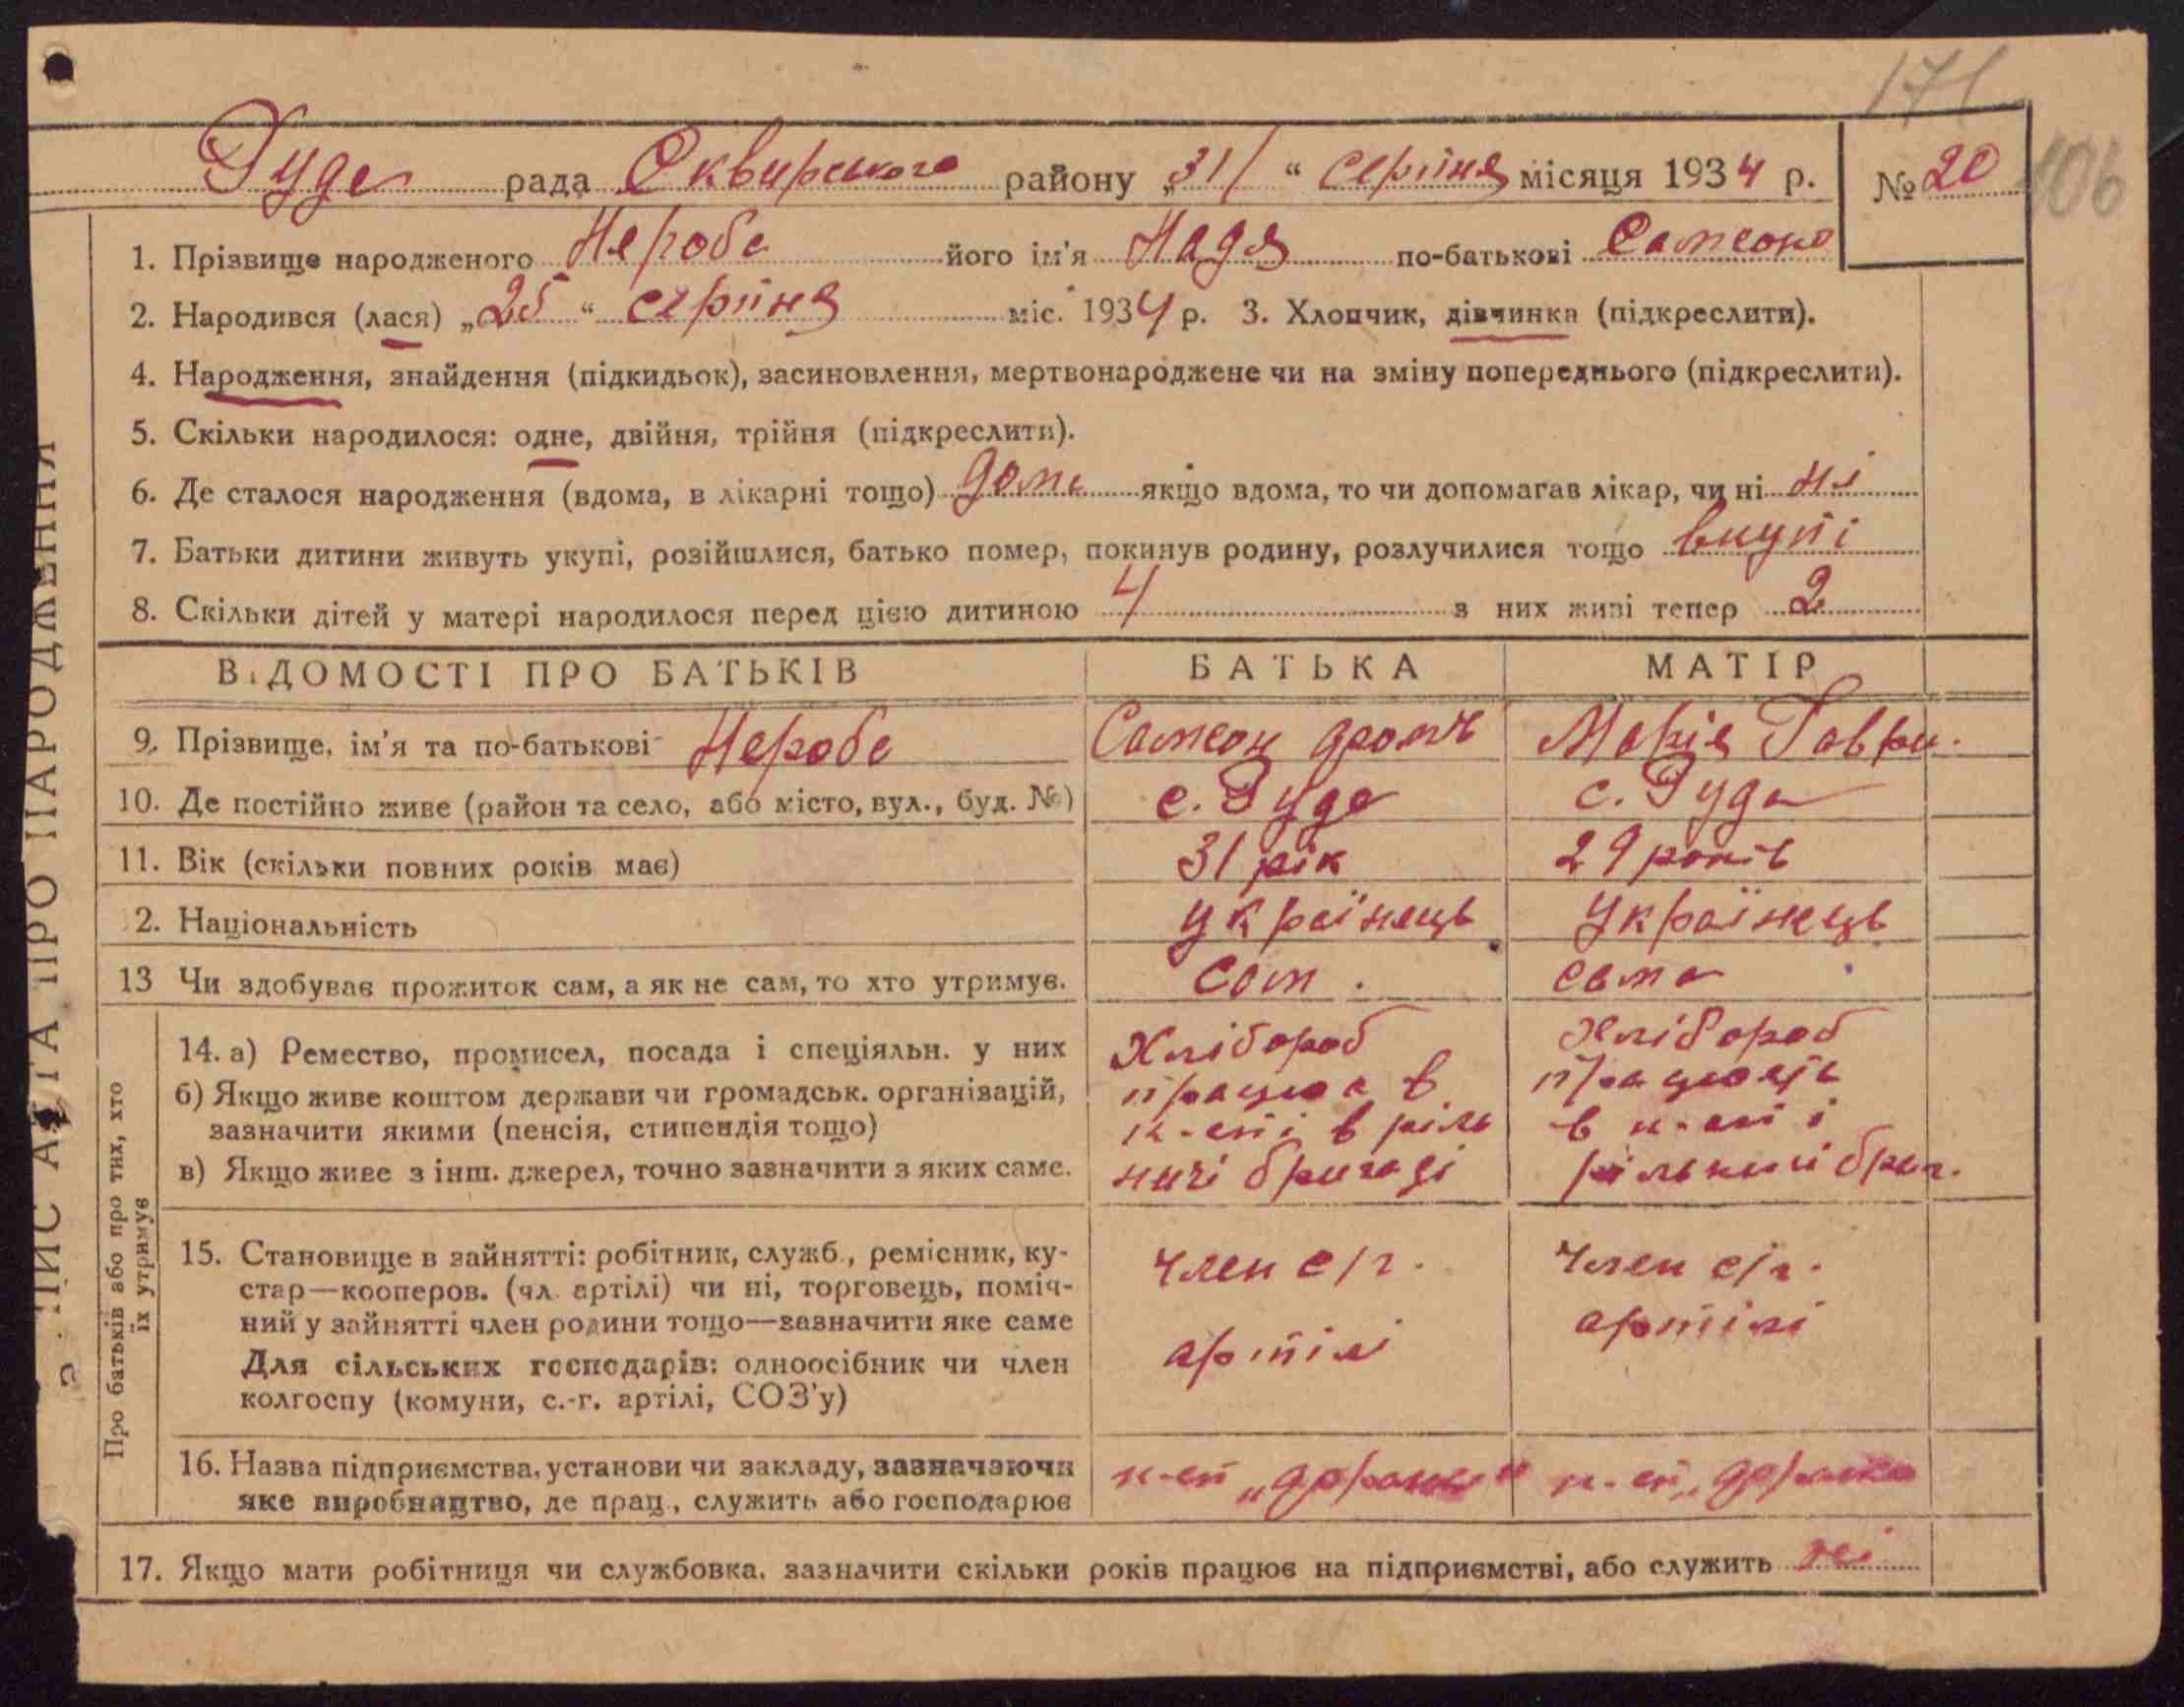 171
Руда рада Сквирського району „31“ серпня місяця 1934 р. № 20
106
1. Прізвище народженого Нероба його ім'я Надя по-батькові Самсоно
2. Народився (лася) „25“ серпня міс. 1934 р. 3. Хлопчик, дівчинка (підкреслити).
4. Народження, знайдення (підкидьок), засиновлення, мертвонароджене чи на зміну попереднього (підкреслити).
5. Скільки народилося: одне, двійня, трійня (підкреслити).
6. Де сталося народження (вдома, в лікарні тощо) дома якщо вдома, то чи допомагав лікар, чи ні ні
7. Батьки дитини живуть укупі, розійшлися, батько помер, покинув родину, розлучилися тощо вкупі
8. Скільки дітей у матері народилося перед цією дитиною 4 з них живі тепер 2
ВІДОМОСТІ ПРО БАТЬКІВ БАТЬКА МАТІР
9. Прізвище, ім'я та по-батькові Нероба Самсон Марія Гаври.
10. Де постійно живе (район та село, або місто, вул., буд. №) с. Руда с. Руда
11. Вік (скільки повних років має) 31 рік 29 років
2. Національність українець Українець
13 Чи здобуває прожиток сам, а як не сам, то хто утримує. Сам. сама
Про батьків або про тих, хто їх утримує
14. а) Ремество, промисел, посада і спеціяльн. у них Хлібороб Хлібороб
б) Якщо живе коштом держави чи громадськ. організацій, працює в працюєть
зазначити якими (пенсія, стипендія тощо) к-спі вріль в к-спі і
в) Якщо живе з інш. джерел, точно зазначити з яких саме. ничі бригаді рільничі бриг.
15. Становище в зайнятті: робітник, служб., ремісник, ку-
стар—кооперов. (чл. артілі) чи ні, торговець, поміч- член с/г. член с/г.
ний у зайнятті член родини тощо—зазначити яке саме артілі артілі
Для сільських господарів: одноосібник чи член
колгоспу (комуни, с.-г. артілі, СОЗ'у)
16. Назва підприємства, установи чи закладу, зазначаючи
яке виробництво, де прац., служить або господарює
17. Якщо мати робітниця чи службовка, зазначити скільки років працює на підприємстві, або служить ні
ПИС АКТА ПРО НАРОДЖЕННЯ